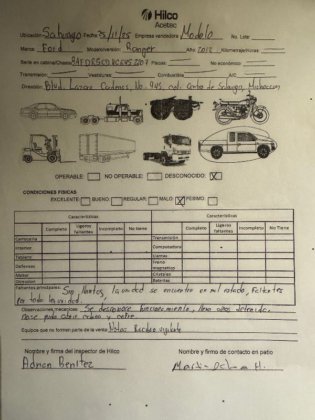 Hilco
Acetec
Ubicación: Sahuayo Fecha: 25/11/25 Empresa vendedora Modelo No. Lote:
Marca: Ford Modelo/versión: Ranger Año: 2012 Kilometraje/Horas:
Serie en catona/Chasis: Placas: No económico:
Transmisión: Vestiduras: Combustible: A/C:
Dirección: Blvd. Lazaro Cardenas No. 945, col. Centro de Sahuayo, Michoacan
OPERABLE: NO OPERABLE: DESCONOCIDO: X
CONDICIONES FISICAS
EXCELENTE: BUENO: REGULAR: MALO: X PESIMO:
Características Características
Completo Ligeros faltantes Incompleto No tiene Completo Ligeros faltantes Incompleto No Tiene
Carrocería Transmisión
Interior Computadora
Tablero Llantas
Defensas
Motor Cristales
Direccion Baterías
Faltantes principales: Sin llantas, la unidad se encuentra en mal estado, Faltantes
por toda la unidad.
Observaciones mecánicas: Se desconoce funcionamiento, lleva años detenido.
Equipos que no forman parte de la venta:
Nombre y firma del inspector de Hilco Nombre y firma de contacto en patio
Adrian Benitez